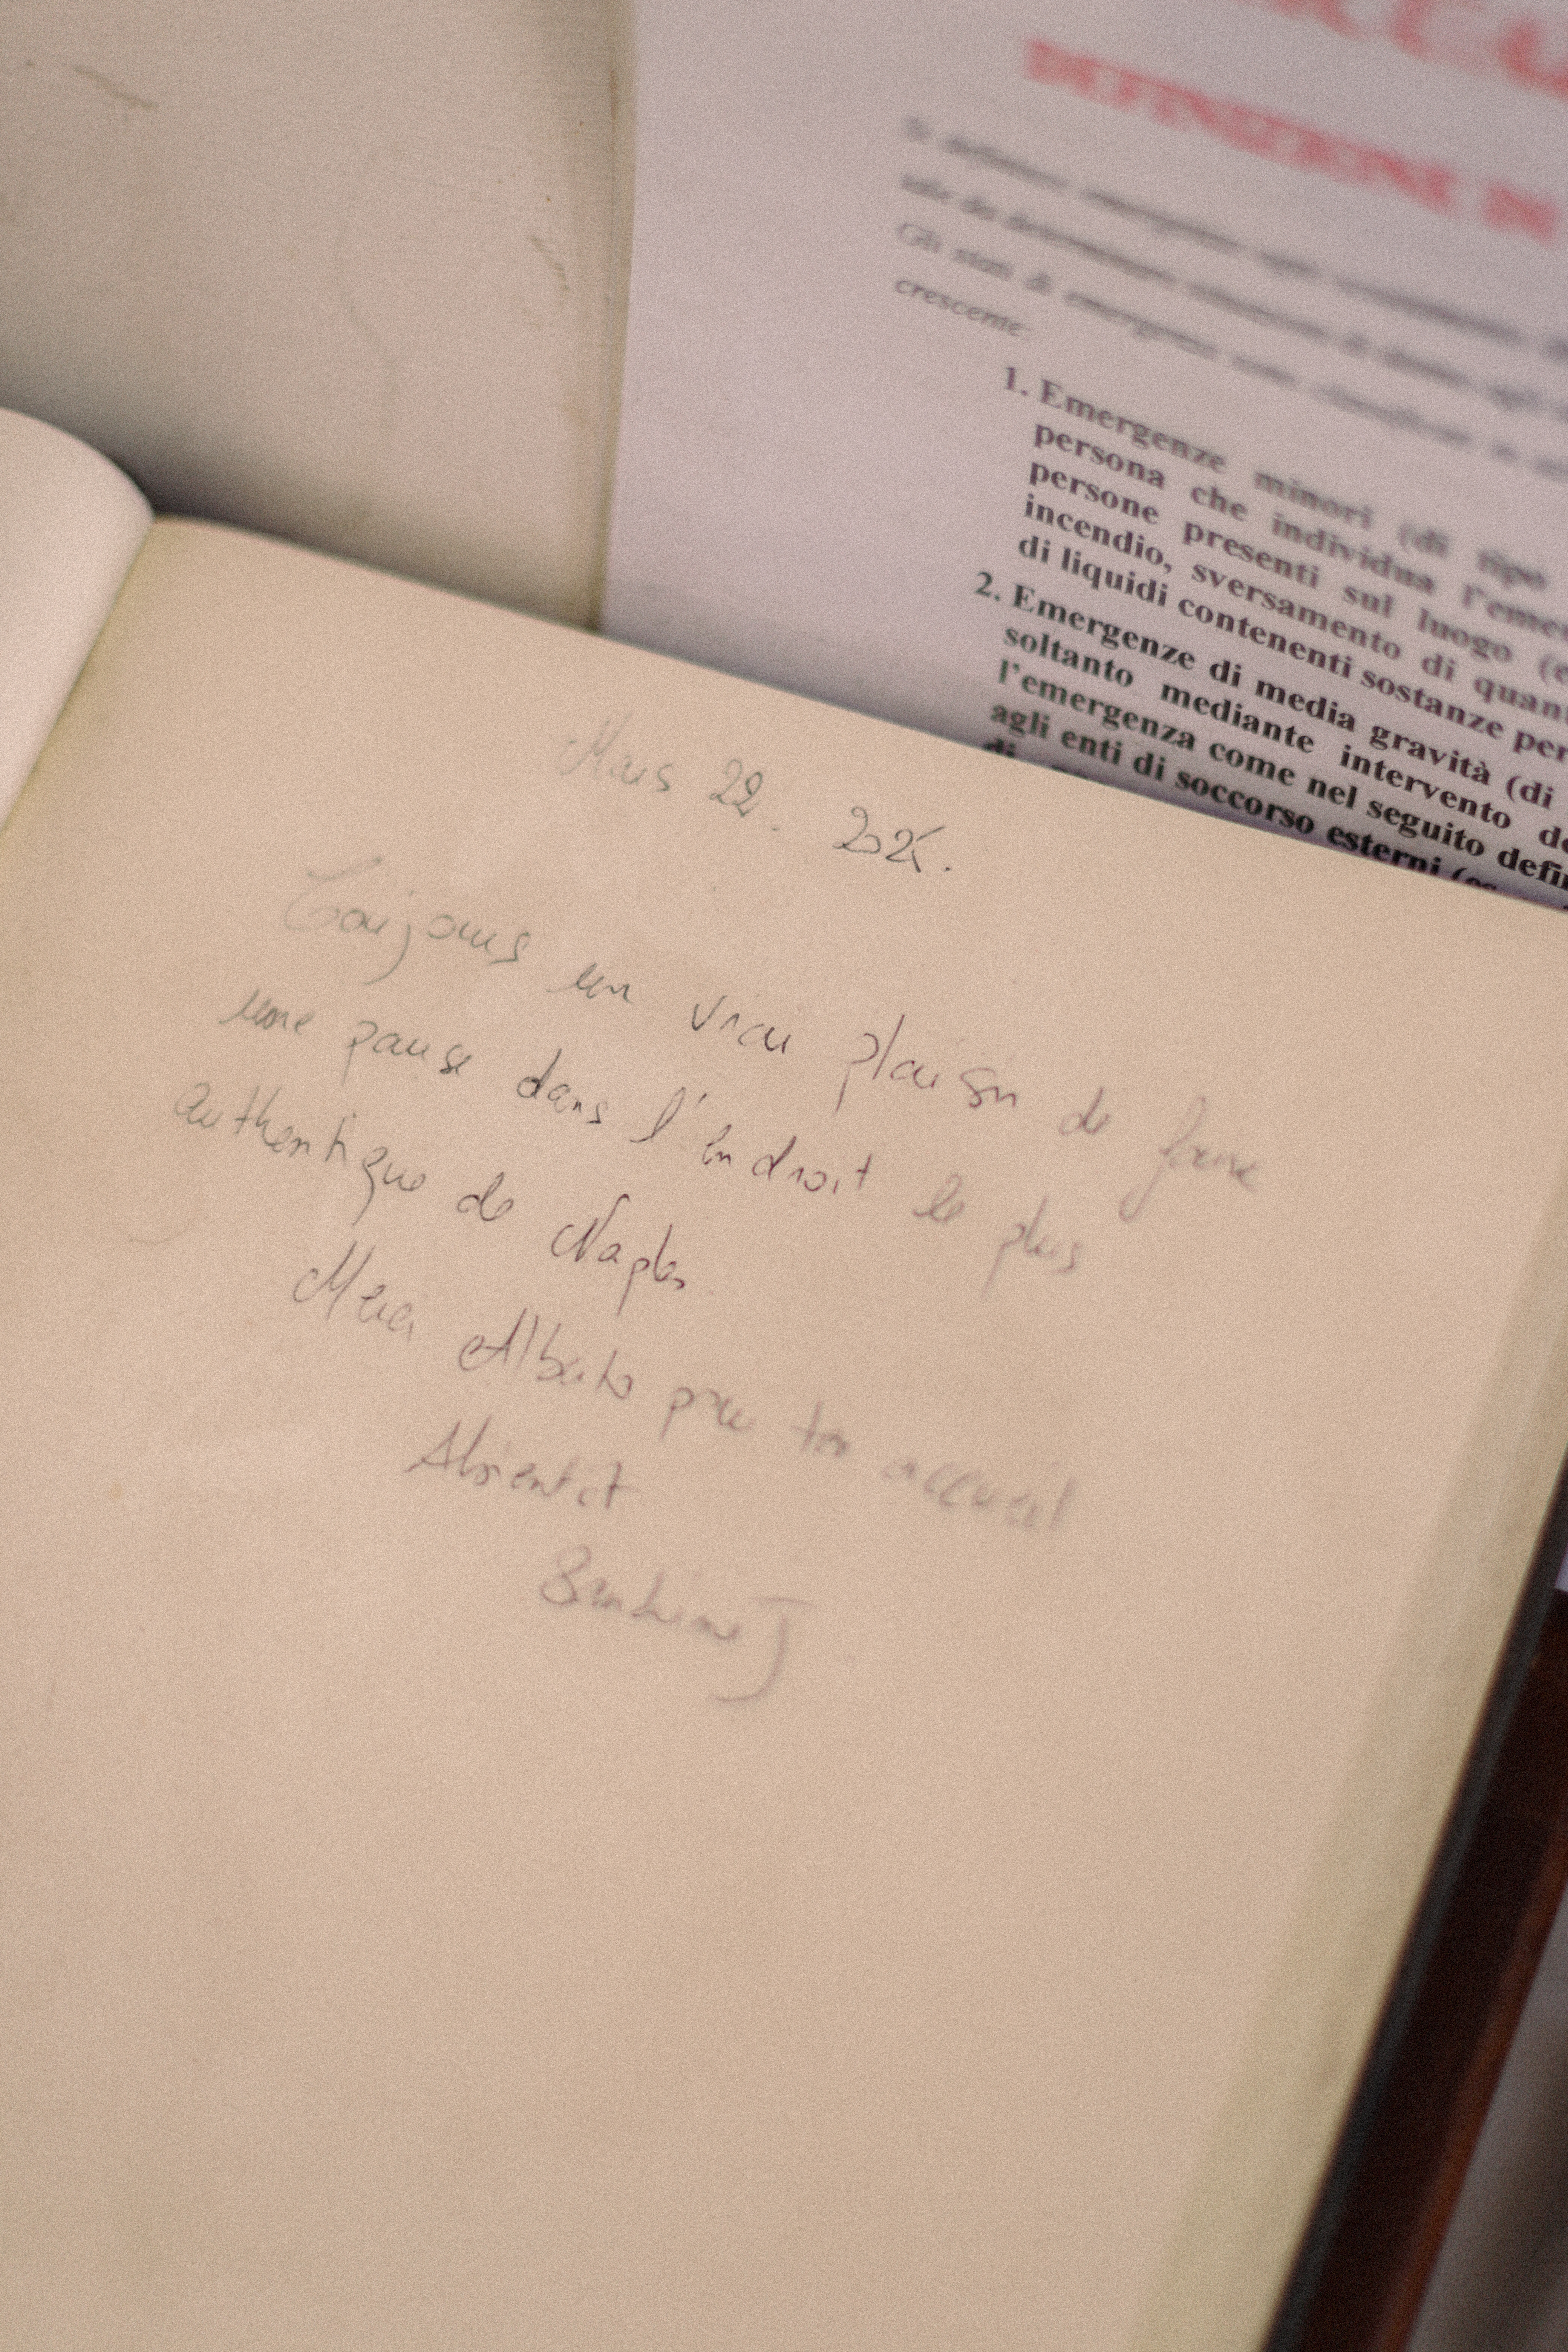 DEFINIZIONE DI
Gli stati di emergenza sono classificati in
crescente:
1. Emergenze minori (di tipo
persona che individua l'emer
persone presenti sul luogo (e
incendio, sversamento di quan
di liquidi contenenti sostanze per
2. Emergenze di media gravità (di
soltanto mediante intervento de
l'emergenza come nel seguito defin
agli enti di soccorso esterni (es
di
Mars 22.
Toujours un vrai plaisir de faire
une pause dans l'endroit le plus
authentique de Naples
Merci Alberto pour ton accueil
A bientôt